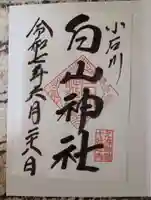 小石川
白山神社
令和七年六月二十八日